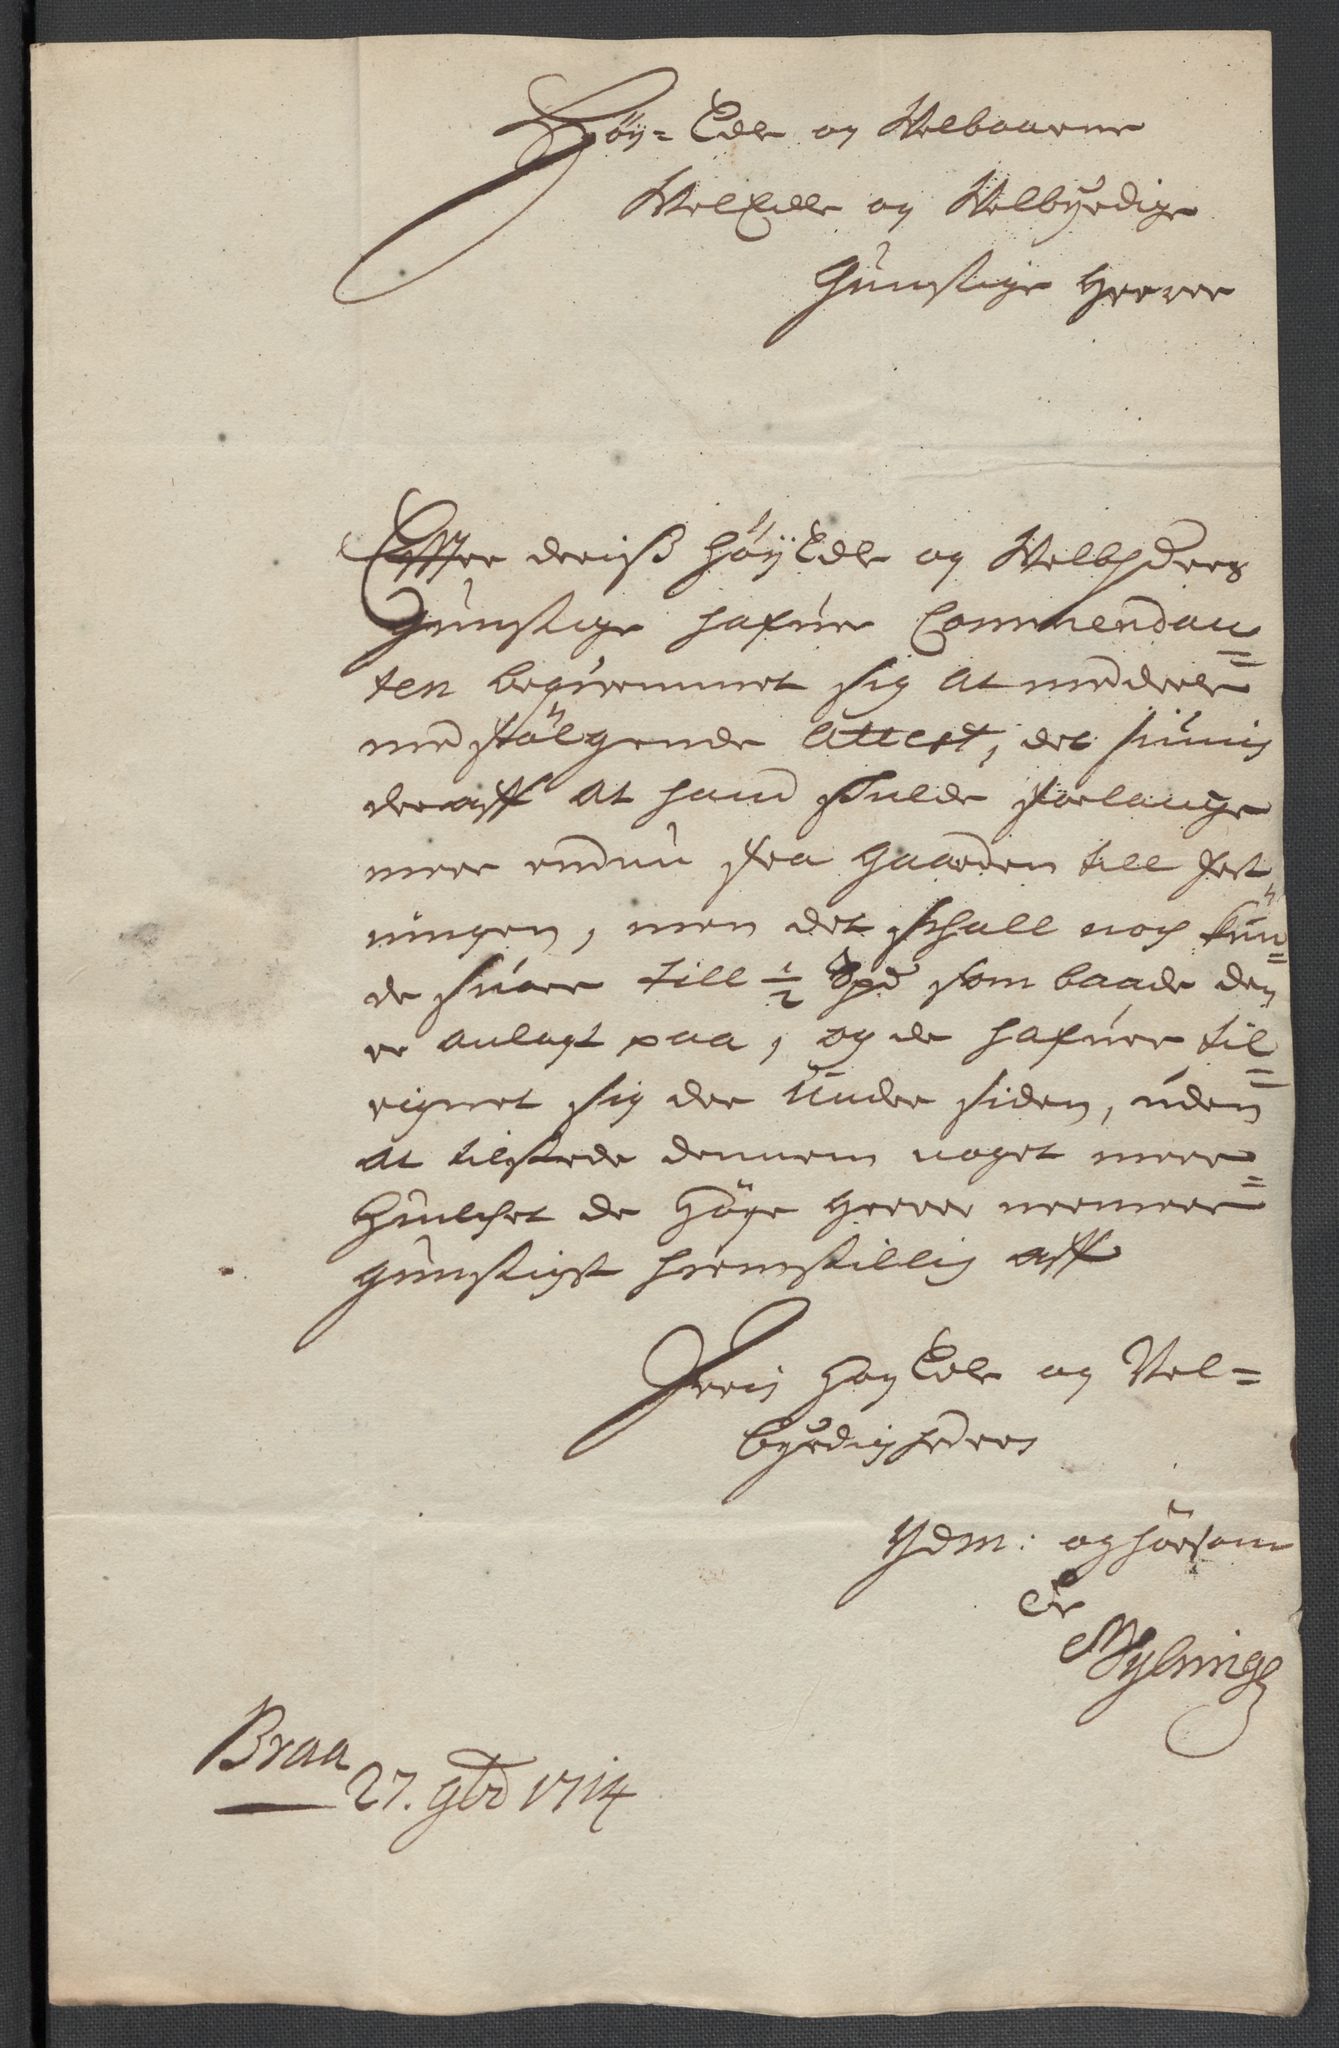 Høy= Edle og Welbaarne
WelEdle og Welbyrdige
Gunstige Herrer

Effter deriß HøyEdle og Welbhders
Gunstige hafuer Commendan=
ten beqvemmet sig at meddeele
medfølgende Attest, det siunis
deraff at hand skulde forlange
meer endnu fra Gaarden till fest
ningen, men det schall nock kun=
de suare till ½ spd som baade den
er anlagt paa, og de hafuer til=
eignet sig der under siden, uden
at tilstede dennem noget meere=
Huilchet de Høye Herrer nermere=
gunstigst hiemstillis aff
Deris HøyEdle og Vel=
byrdigheders
Ydm: og hørsom
Er
Braa
27. 9br 1714